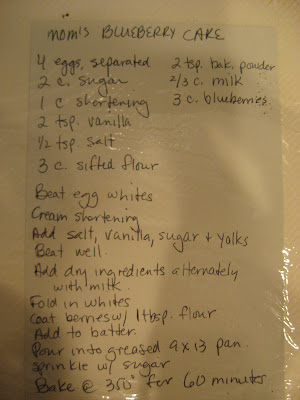 MOM'S BLUEBERRY CAKE
4 eggs, separated
2 c. sugar
1 c shortening
2 tsp. vanilla
1/2 tsp. salt
3 c. sifted flour
2 tsp. bak. powder
2/3 c. milk
3 c. blueberries
Beat egg whites
Cream shortening
Add salt, vanilla, sugar + yolks
Beat well.
Add dry ingredients alternately
with milk.
Fold in whites
Coat berries w/ 1 tbsp. flour
Add to batter.
Pour into greased 9x13 pan.
Sprinkle w/ sugar
Bake @ 350° for 60 minutes